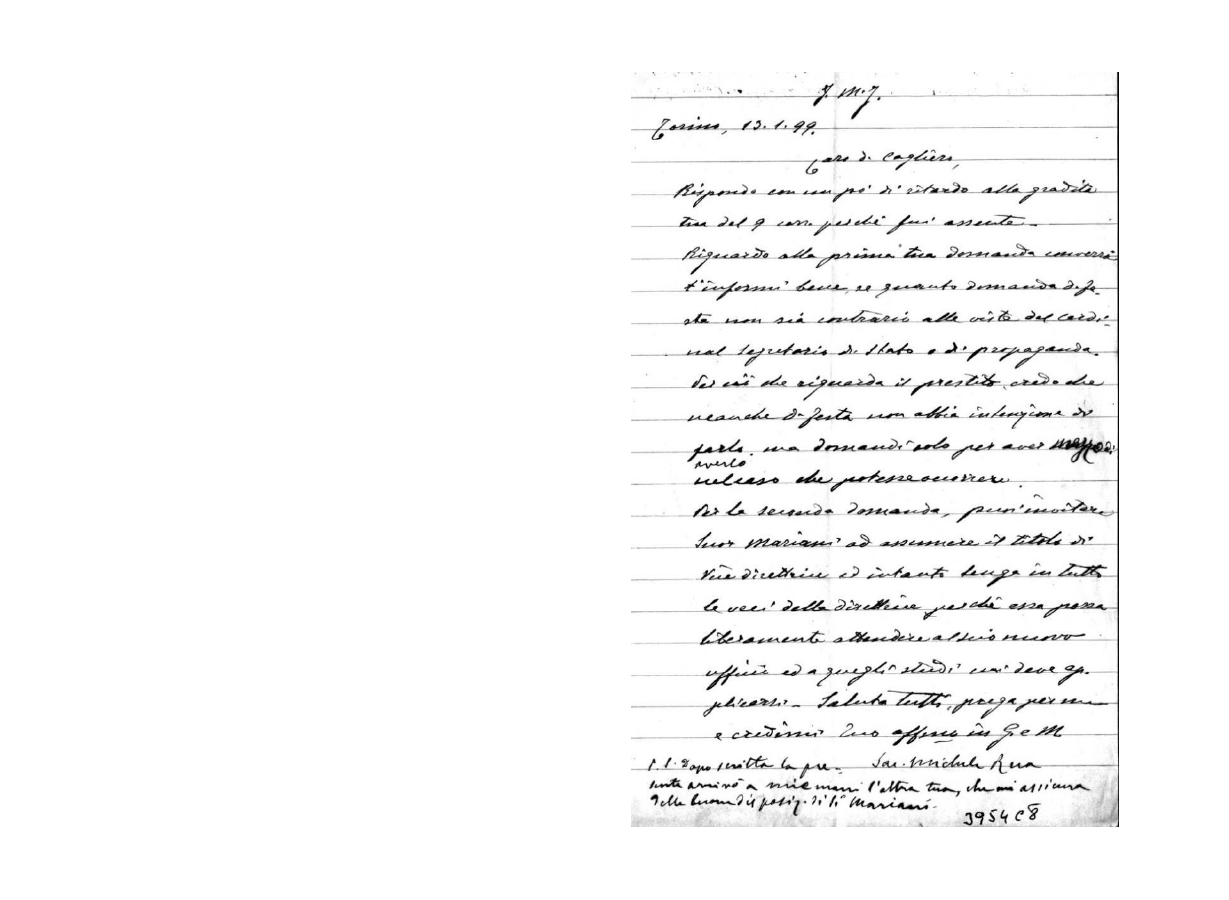 J. M. J.
Torino, 13. 1. 99.
Caro D. Cagliero,
Rispondo con un po' di ritardo alla gradita
tua del 9 corr. perchè fui assente –
Riguardo alla prima tua domanda converrà
t'informi bene, se quanto domanda D. Fe-
sta non sia contrario alle viste del Cardi-
nal Segretario di Stato o di propaganda.
Per ciò che riguarda il prestito, credo che
neanche D. Festa non abbia intenzione di
farlo, ma domandi solo per aver mezzo di
averlo
nel caso che potesse occorrere.
Per la seconda domanda, puoi invitare
Suor Mariani ad assumere il titolo di
Vice direttrice ed intanto tenga in tutto
le veci della direttrice perchè essa possa
liberamente attendere al suo nuovo
ufficio ed a quegli studi cui deve ap-
plicarsi – Saluta tutti, prega per me
e credimi Tuo affmo in G. e M
P.S. Dopo scritta la pre- Sac. Michele Rua
sente arrivò a mie mani l'altra tua, che mi assicura
delle buone disposiz. di S. Mariani.
3954 C8